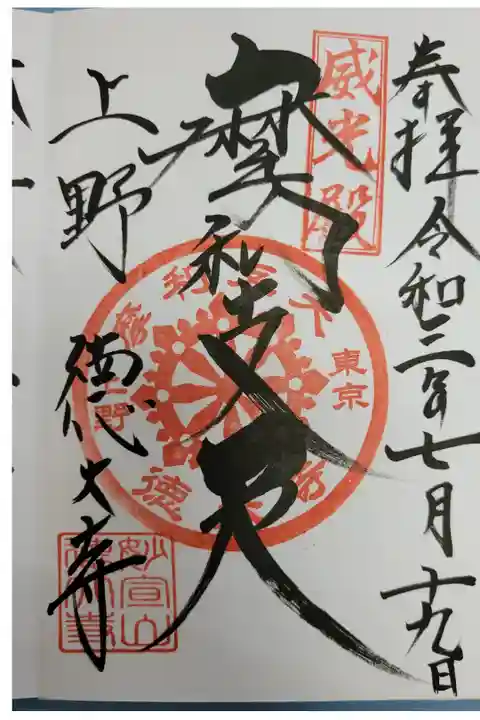 奉拝 令和三年七月十九日
威光殿
摩利支天
上野 徳大寺
東京
上野
妙宣山
徳大寺